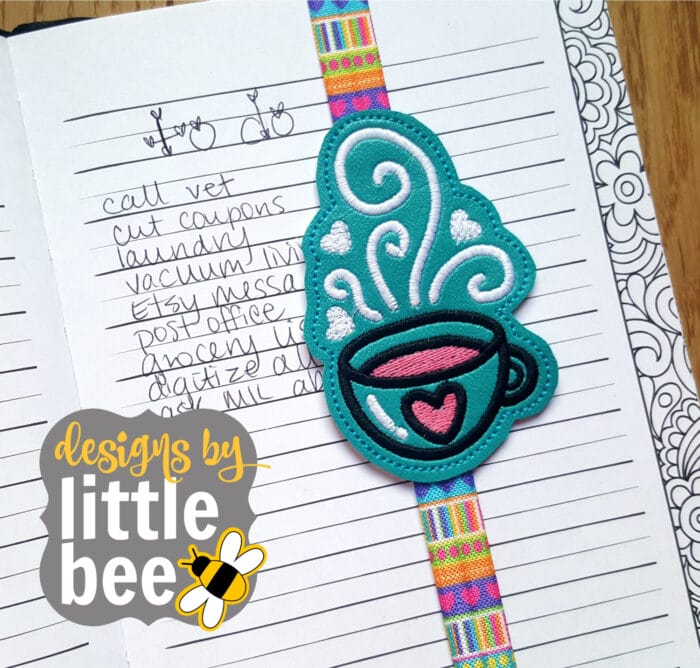 To Do
call vet
cut coupons
laundry
vacuum livi
Etsy messa
post office
grocery lis
digitize
ask MIL
designs by
little
bee